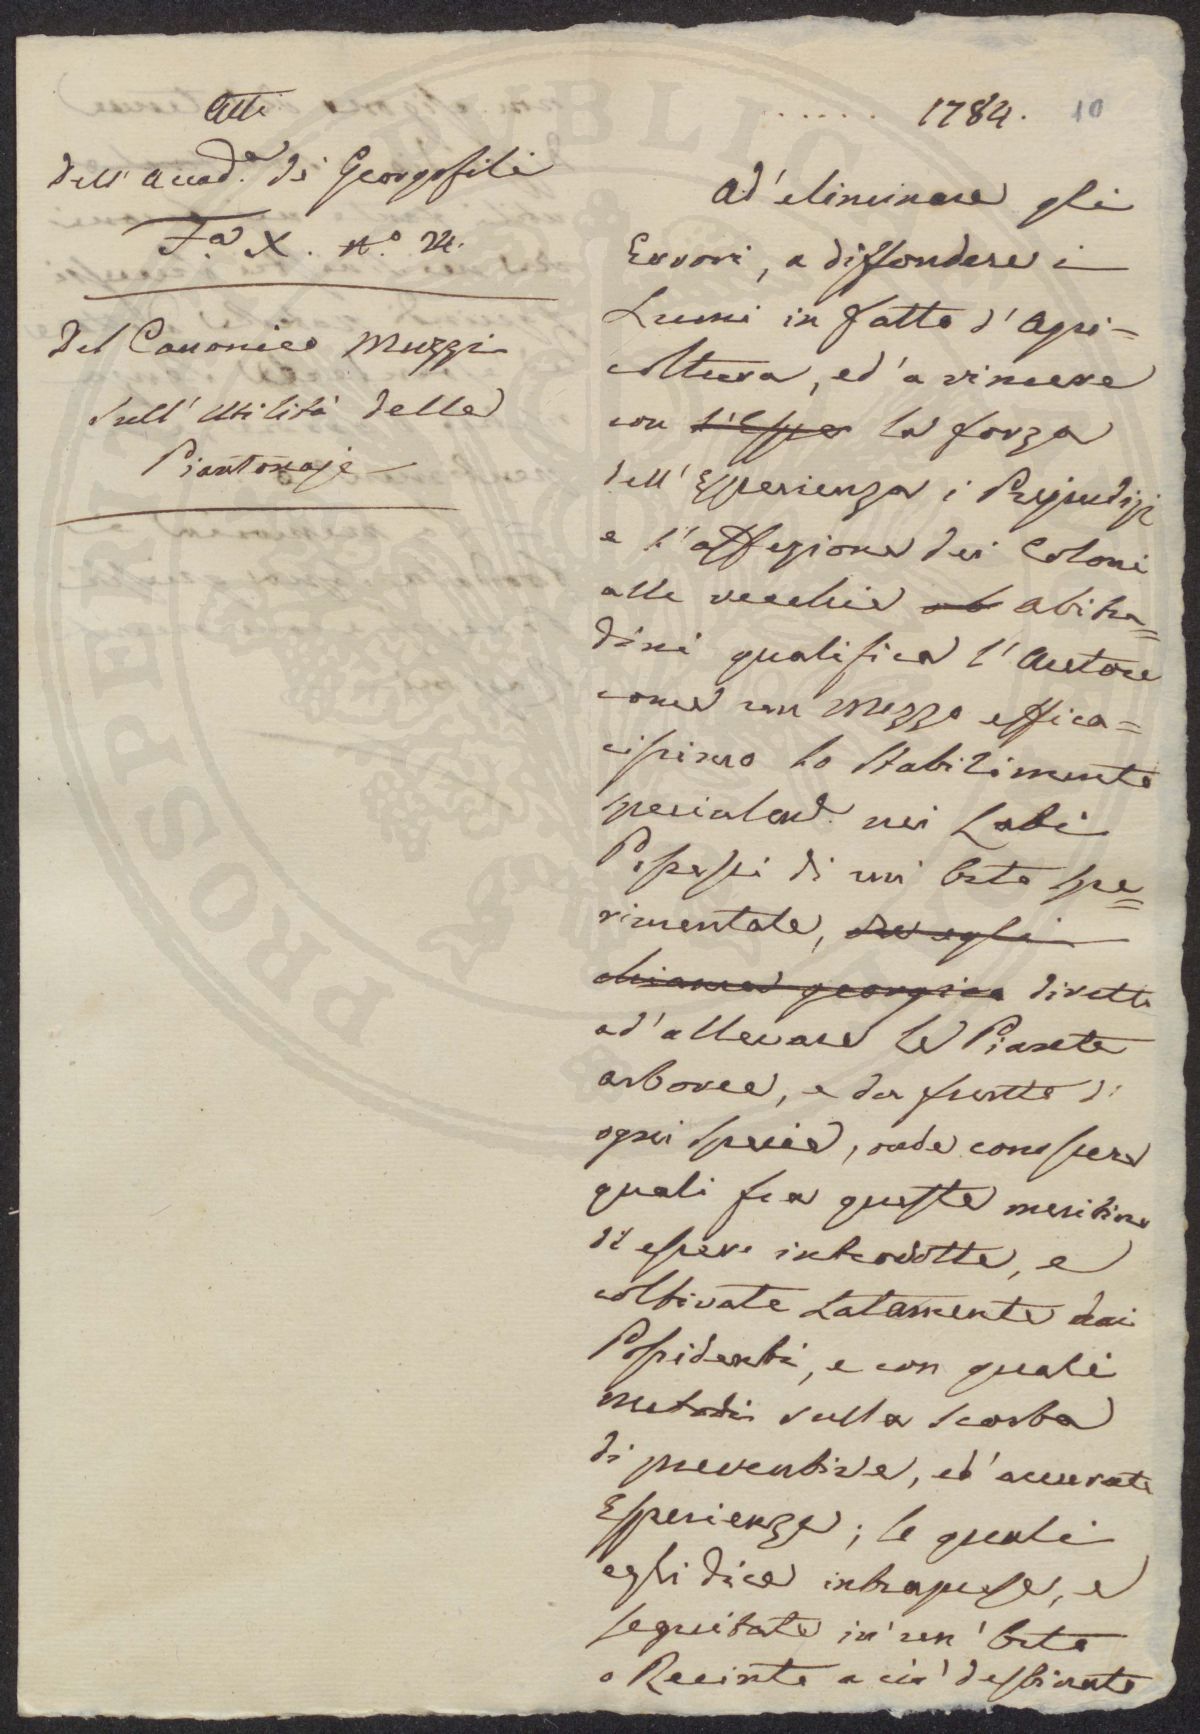 Atti
dell' Accad.a di Georgofili
F.a X. N.o 24.
Del Canonico Muzzi
sull' Utilità delle
Piantonaje
1784. 10
Ad' eliminare gli
Errori, a diffondere i
Lumi in fatto d' Agri=
coltura, ed' a vincere
con l'Espe la forza
dell' Esperienza i Pregiudizj
e l'affezione dei Coloni
alle vecchie ab abitu=
dini qualifica l' Autore
come un mezzo effica=
cissimo lo stabilimento
specialmd. nei Lati
Possessi di un' Orto spe=
rimentale, che egli
chiama georgico diretto
ad' allevare le Piante
arboree, e da frutto di
ogni specie, onde conoscere
quali fra queste meritino
di essere introdotte, e
coltivate Latamente dai
Possidenti, e con quali
metodi sulla scorta
di preventive, ed' accurate
Esperienze; le quali
egli dice intraprese, e
seguitate in' un' Orto
o Recinto a ciò destinato
PUBLIC
PROSIT